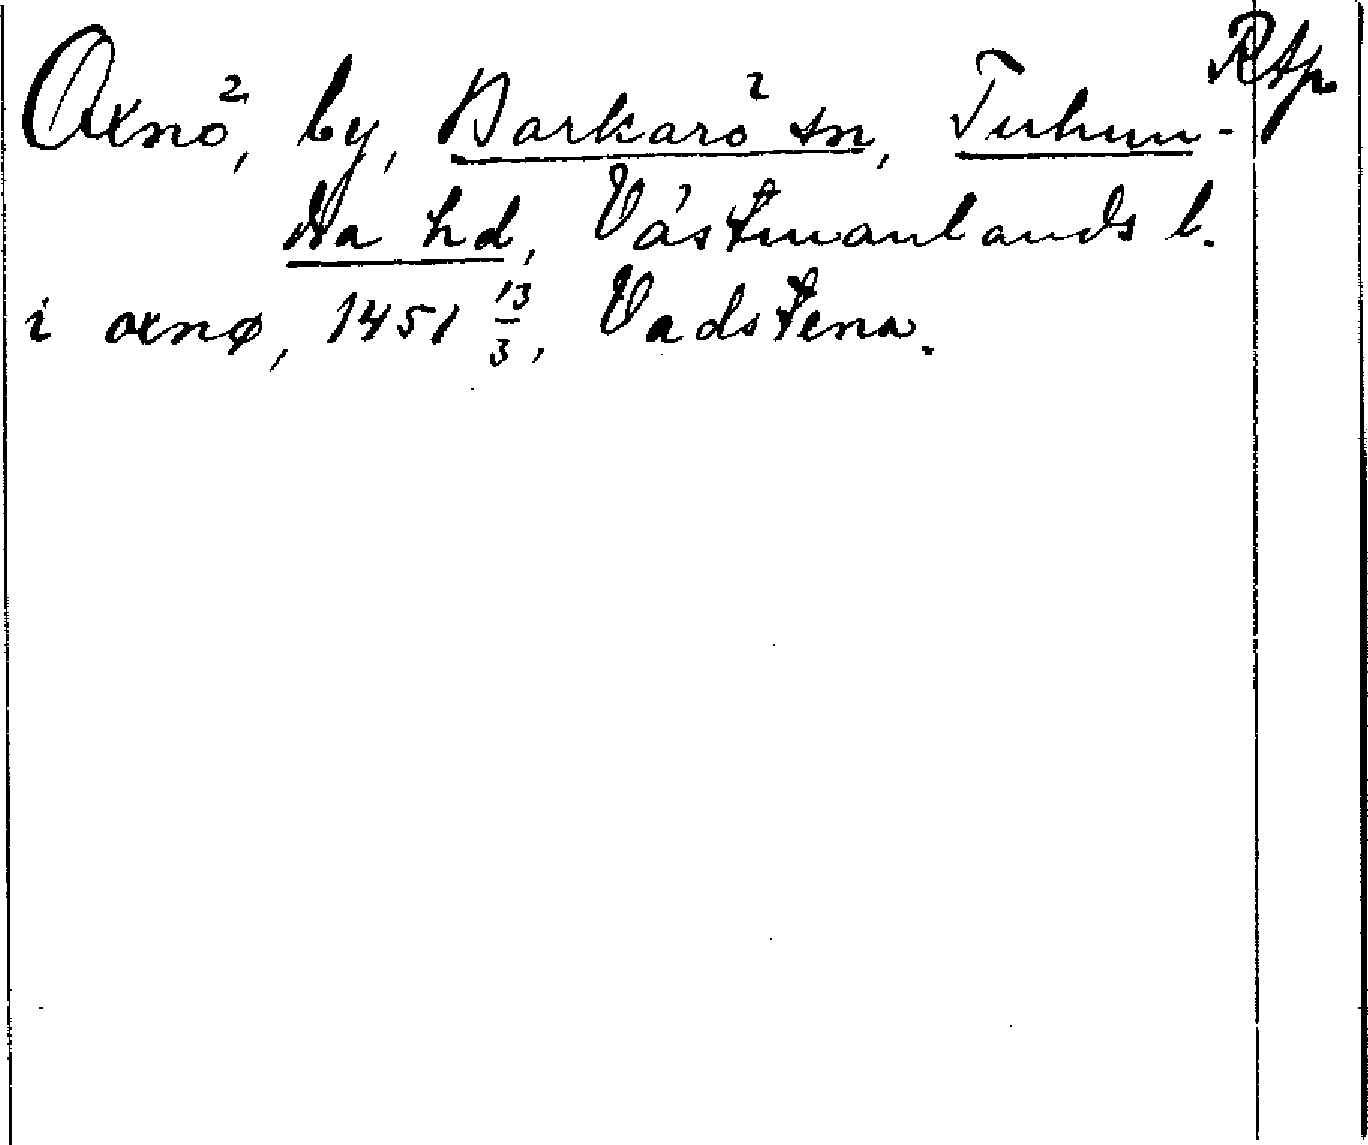 Rtp.
Oxnö, by, Barkarö sn, Tuhun-
dra hd, Västmanlands l.
i oxnø, 1451 13/3, Vadstena.